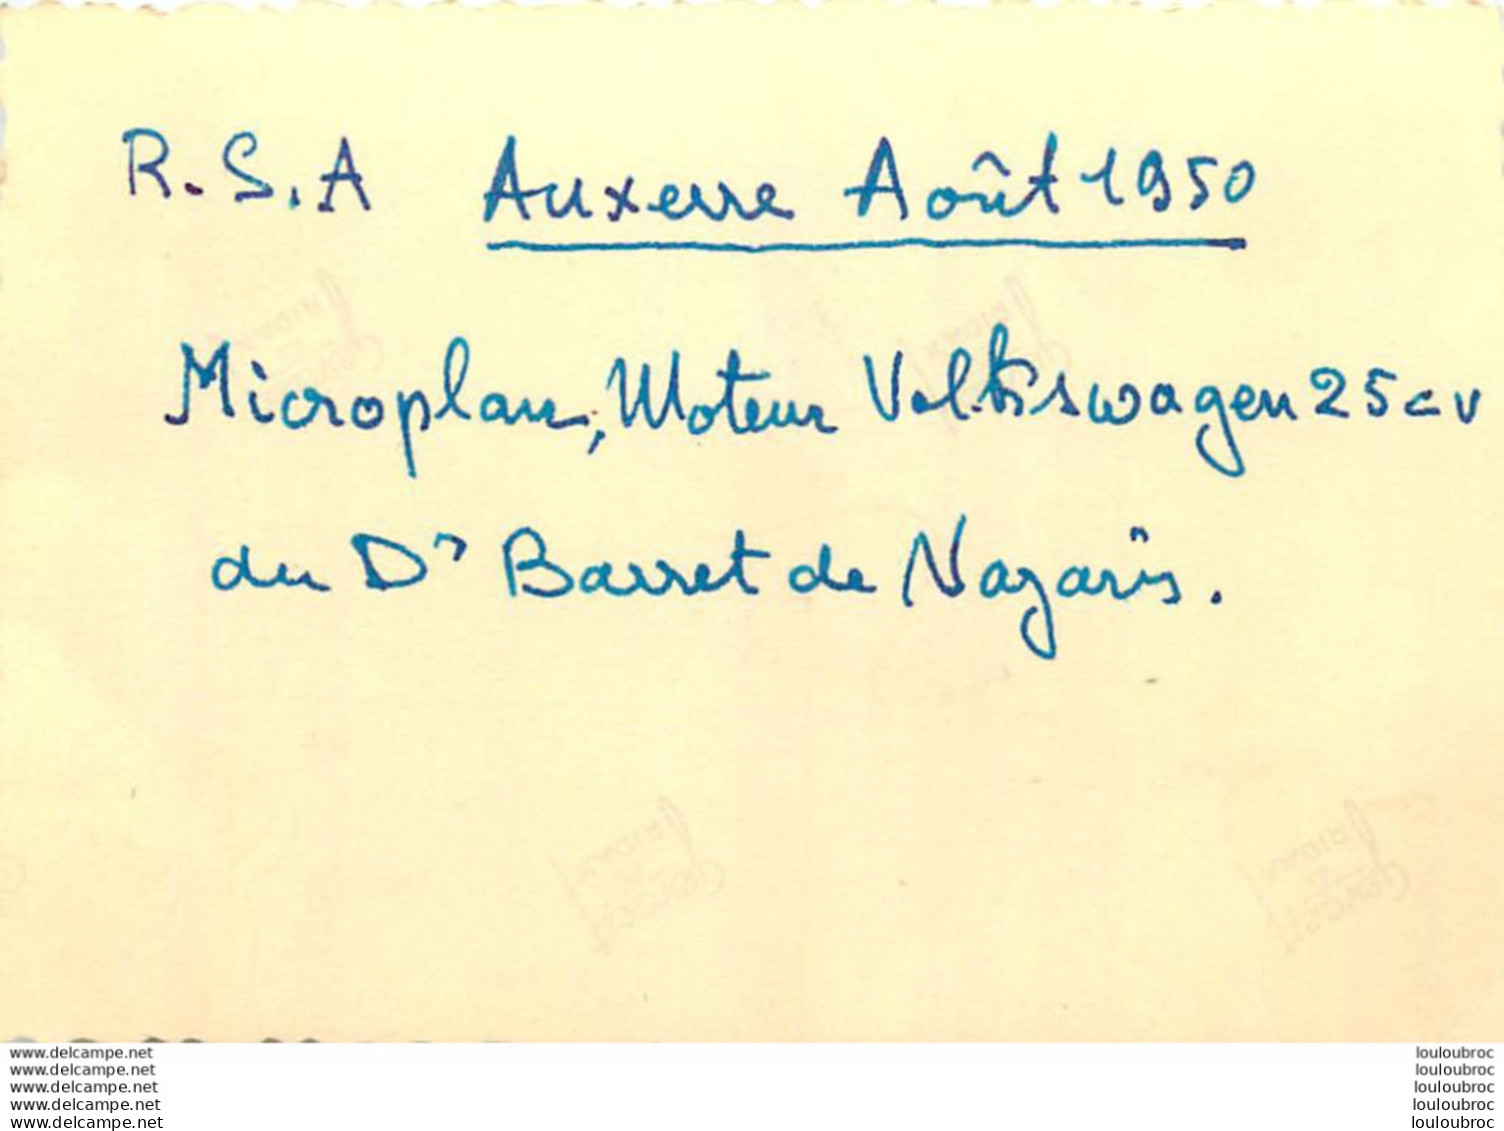 R.S.A Auxerre Août 1950
Microplan, Moteur Volkswagen 25 cv
du Dr Barret de Nazaris.
www.delcampe.net
www.delcampe.net
www.delcampe.net
www.delcampe.net
www.delcampe.net
louloubroc
louloubroc
louloubroc
louloubroc
louloubroc